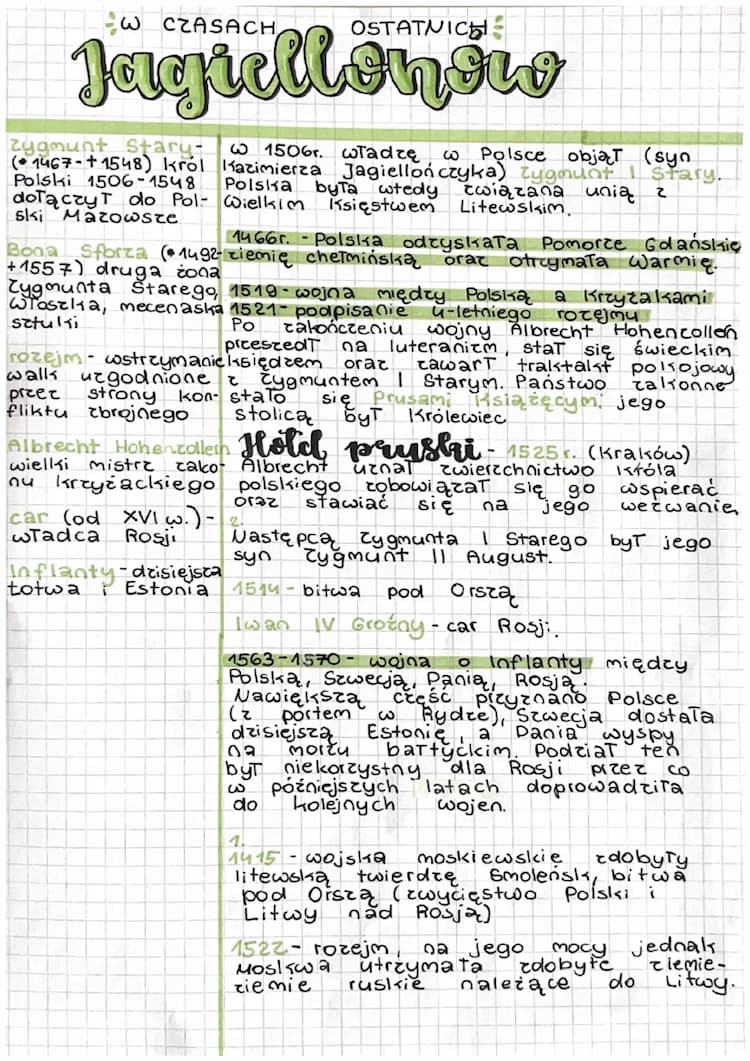 W CZASACH OSTATNICH
Jagiellonów
Zygmunt Stary -
(*1467-+1548) król
Polski 1506-1548
dołączył do Pol-
ski Mazowsze
Bona Sforza (*1492-
+1557) druga żona
Zygmunta Starego,
Włoszka, mecenaska
sztuki
rozejm - wstrzymanie
walk uzgodnione
przez strony kon-
fliktu zbrojnego
Albrecht Hohenzollern
wielki mistrz zako-
nu krzyżackiego
car (od XVI w.) -
władca Rosji
Inflanty - dzisiejsza
łotwa i Estonia
w 1506r. władzę w Polsce objął (syn
Kazimierza Jagiellończyka) Zygmunt I Stary.
Polska była wtedy związana unią z
Wielkim Księstwem Litewskim.
1466r. - Polska odzyskała Pomorze Gdańskie
ziemię chełmińską oraz otrzymała Warmię.
1519 - wojna między Polską a Krzyżakami
1521 - podpisanie 4-letniego rozejmu
Po zakończeniu wojny Albrecht Hohenzollen
przeszedł na luteranizm, stał się świeckim
księdzem oraz zawarł traktakt pokojowy
z Zygmuntem I Starym. Państwo zakonne
stało się Prusami Książęcymi, jego
stolicą był Królewiec
Hołd pruski - 1525r. (Kraków)
Albrecht uznał zwierzchnictwo króla
polskiego zobowiązał się go wspierać
oraz stawiać się na jego wezwanie,
2.
Następcą Zygmunta I Starego był jego
syn Zygmunt II August.
1514 - bitwa pod Orszą
Iwan IV Groźny - car Rosji.
1563-1570 - wojna o Inflanty między
Polską, Szwecją, Danią, Rosją.
Nawiększą część przyznano Polsce
(z portem w Rydze), Szwecja dostała
dzisiejszą Estonię, a Dania wyspy
na morzu bałtyckim. Podział ten
był niekorzystny dla Rosji przez co
w późniejszych latach doprowadziła
do kolejnych wojen.
1.
1415 - wojska moskiewskie zdobyły
litewską twierdzę Smoleńsk, bitwa
pod Orszą (zwycięstwo Polski i
Litwy nad Rosją)
1522 - rozejm, na jego mocy jednak
Moskwa utrzymała zdobyte ziemie-
ziemie ruskie należące do Litwy.